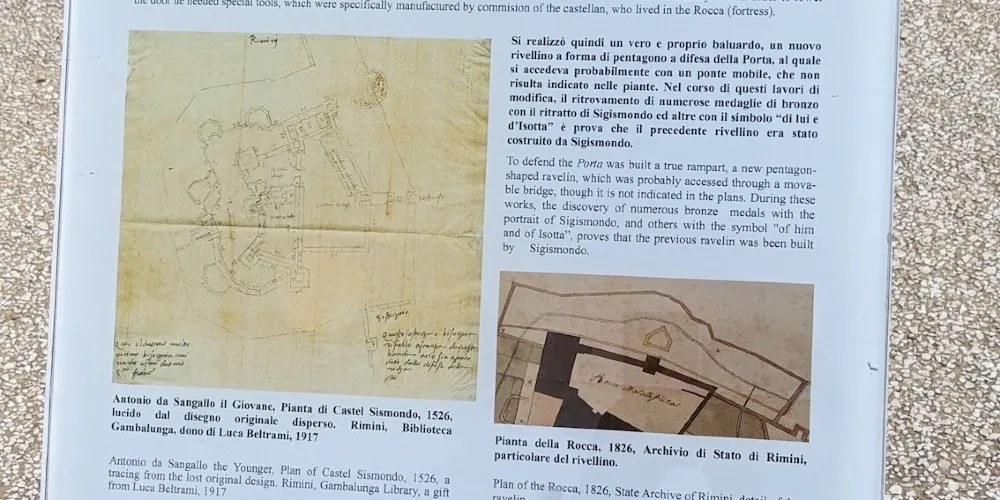 the door he needed special tools, which were specifically manufactured by commision of the castellan, who lived in the Rocca (fortress).
Riminy
Antonio da Sangallo il Giovane, Pianta di Castel Sismondo, 1526,
lucido dal disegno originale disperso. Rimini, Biblioteca
Gambalunga, dono di Luca Beltrami, 1917
Antonio da Sangallo the Younger, Plan of Castel Sismondo, 1526, a
tracing from the lost original design. Rimini, Gambalunga Library, a gift
from Luca Beltrami, 1917
Si realizzò quindi un vero e proprio baluardo, un nuovo
rivellino a forma di pentagono a difesa della Porta, al quale
si accedeva probabilmente con un ponte mobile, che non
risulta indicato nelle piante. Nel corso di questi lavori di
modifica, il ritrovamento di numerose medaglie di bronzo
con il ritratto di Sigismondo ed altre con il simbolo “di lui e
d’Isotta” è prova che il precedente rivellino era stato
costruito da Sigismondo.
To defend the Porta was built a true rampart, a new pentagon-
shaped ravelin, which was probably accessed through a mova-
ble bridge, though it is not indicated in the plans. During these
works, the discovery of numerous bronze medals with the
portrait of Sigismondo, and others with the symbol "of him
and of Isotta", proves that the previous ravelin was been built
by Sigismondo.
Rocca Malatestiana
Pianta della Rocca, 1826, Archivio di Stato di Rimini,
particolare del rivellino.
Plan of the Rocca, 1826, State Archive of Rimini, detail of the
ravelin